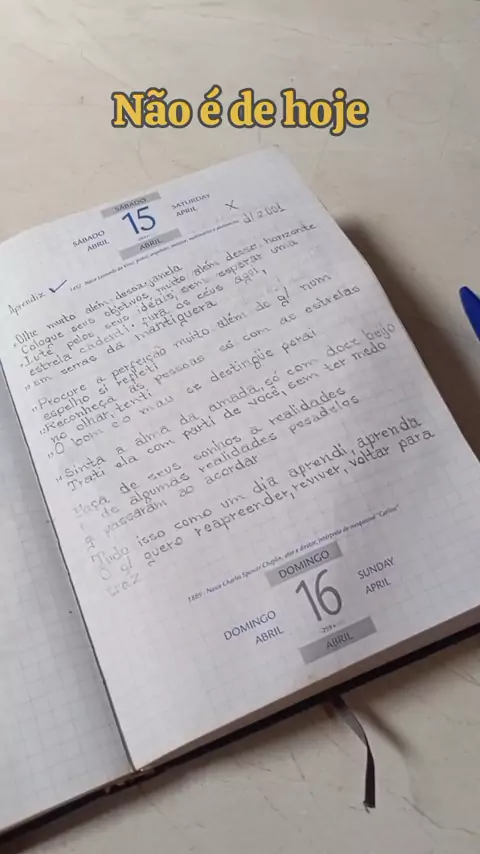 Não é de hoje
SÁBADO
SÁBADO
ABRIL
15
SATURDAY
APRIL
ABRIL
X
d/2001
1452 - Nasce Leonardo da Vinci, pintor, arquiteto,
Aprendiz ✓
"Olhe muito além dessa janela
"Coloque seus objetivos, muito além desse horizonte
"Lute pelos seus ideais, sem esperar uma
estrela cadente, fura os céus aqui,
"em serras da mantiqueira
"Procure a perfeição muito além do q/ num
espelho si refleti
"Reconheça as pessoas só com as estrelas
no olhar, tenti
"O bom e o mau se destingüe perai
"Sinta a alma da amada, só com doce beijo
Trati ela com parti de você, sem ter medo
Faça de seus sonhos a realidades
de algumas realidades pesadelos
q passaram ao acordar
Tudo isso como um dia aprendi, aprenda
q/ quero reapreender, reviver, voltar para
traz
1889 - Nasce Charles Spencer Chaplin, ator e diretor, intérprete do inesquecível "Carlitos"
DOMINGO
DOMINGO
ABRIL
16
SUNDAY
APRIL
ABRIL